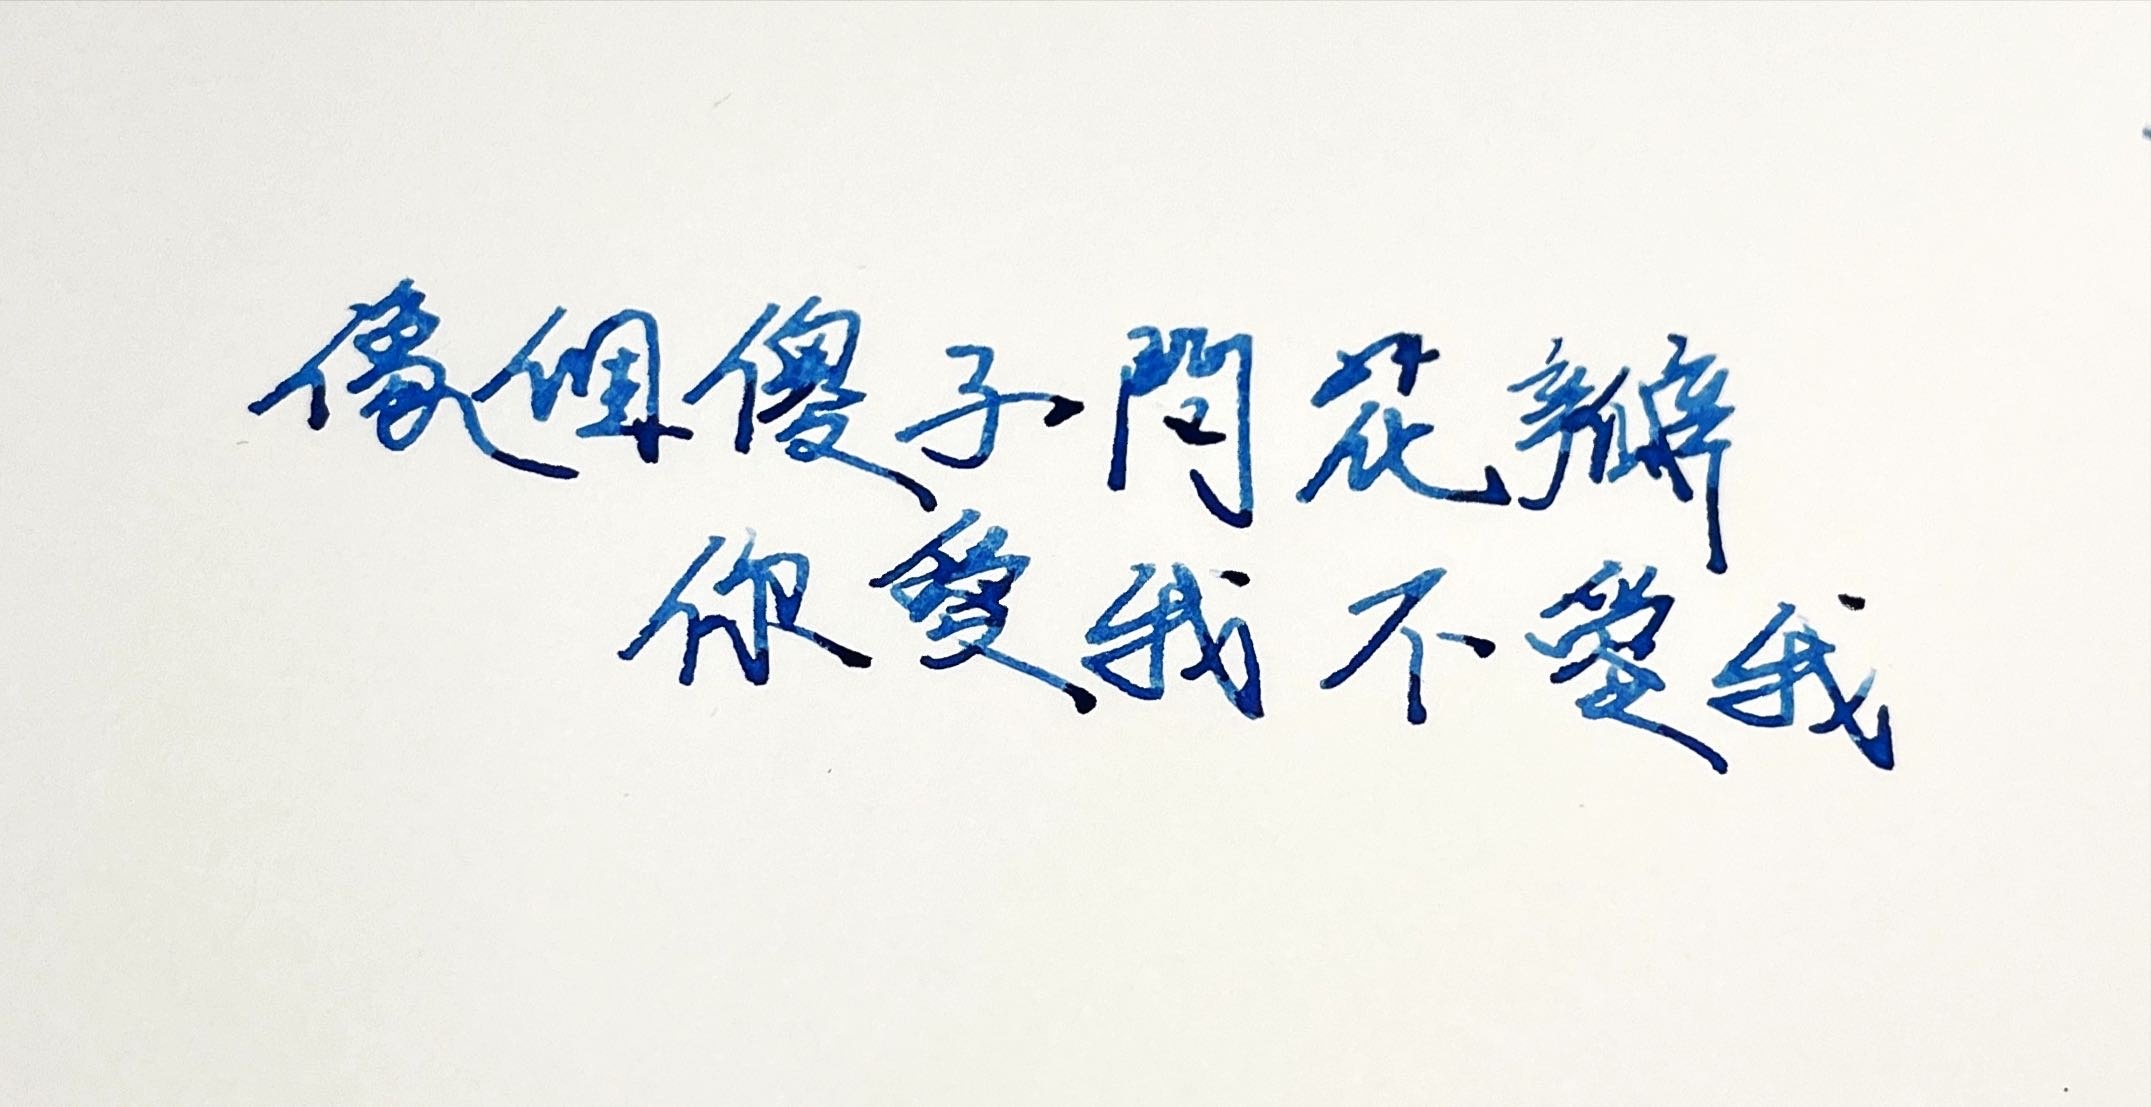 像個傻子問花瓣
你愛我不愛我